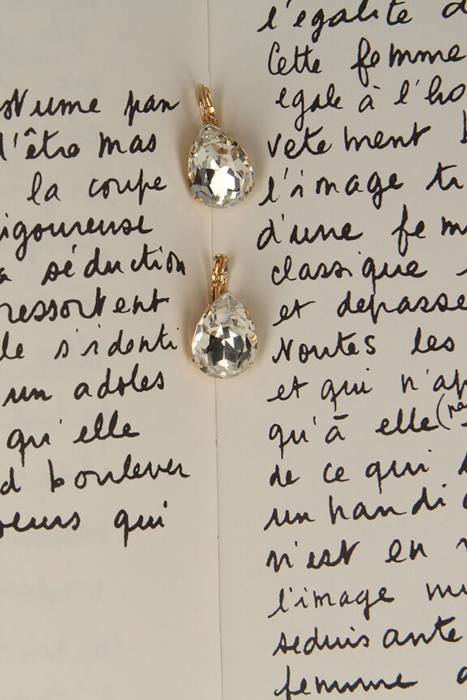 ostume pan
d'être mas
la coupe
rigoureuse
a séduction
ressortent
le s'identi
un adoles
qu'elle
d boulever
oeurs qui
l'égalité d
Cette femme
egale à l'ho
vetement
l'image tr
d'une fem
classique
et depasse
toutes les
et qui n'ap
qu'à elle (
de ce qui
un handi
n'est en
l'image mu
seduisante
femme